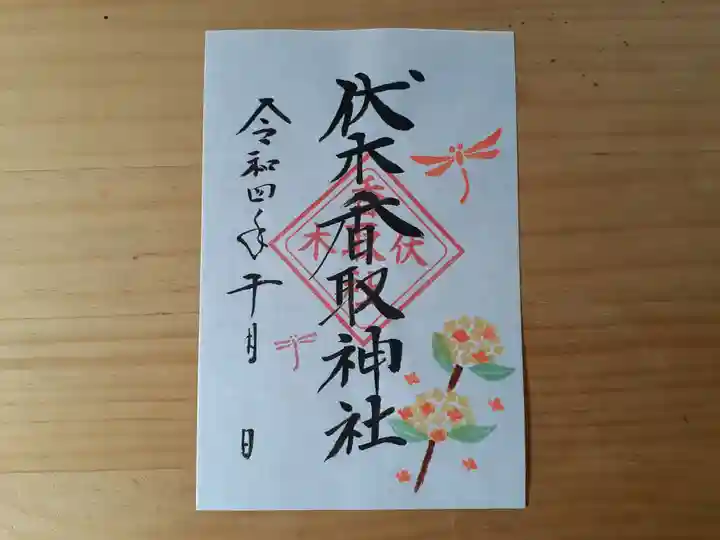 伏木香取神社
令和四年十月 日
伏木
香取